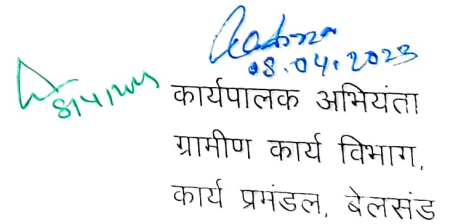 08.04.2023
कार्यपालक अभियंता
ग्रामीण कार्य विभाग,
कार्य प्रमंडल, बेलसंड